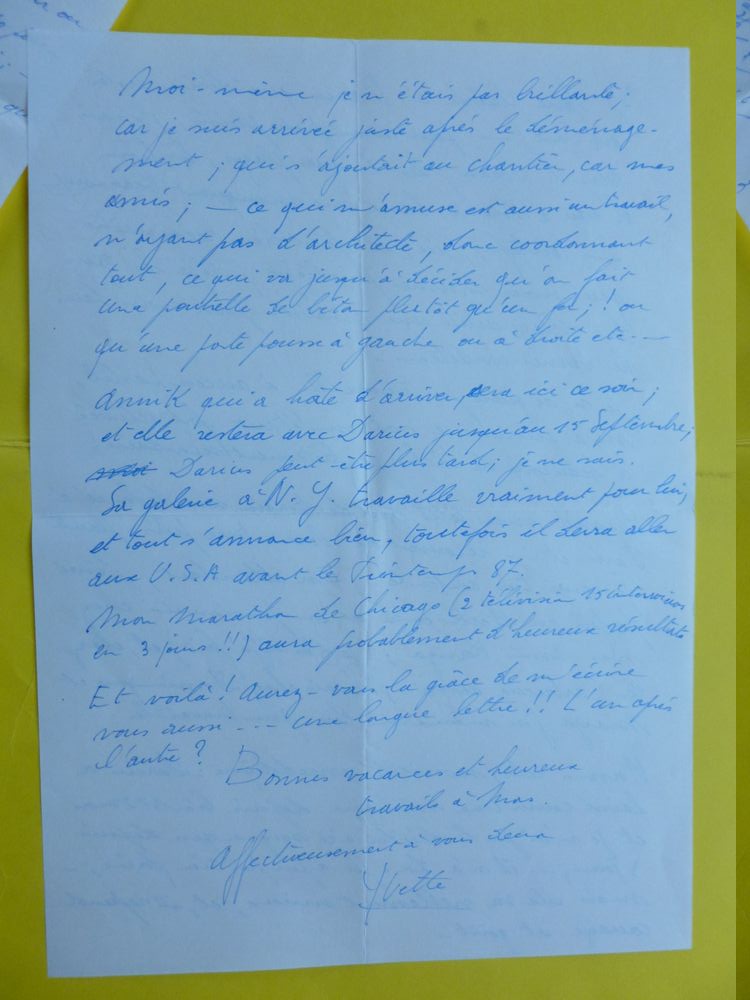 Moi-même je n'étais pas brillante,
car je suis arrivée juste après le déménage-
ment ; qui s'ajoutait au chantier, car mes
amis ; — ce qui m'amuse est aussi un travail,
n'ayant pas d'architecte, donc coordonnant
tout, ce qui va jusqu'à décider qu'on fait
une poutrelle de béton plutôt qu'en fer ; ! ou
qu'une porte pousse à gauche ou à droite etc...
Annik qui a hâte d'arriver, sera ici ce soir ;
et elle restera avec Darius jusqu'au 15 Septembre,
Darius peut-être plus tard ; je ne sais.
Sa galerie à N.Y. travaille vraiment pour lui,
et tout s'annonce bien, toutefois il devra aller
aux U.S.A avant le Printemps 87.
Mon Marathon de Chicago (2 télévision 15 interviews
en 3 jours !!) aura probablement d'heureux résultats
Et voilà ! Aurez-vous la grâce de m'écrire
vous aussi --- une longue lettre !! L'un après
l'autre ?
Bonnes vacances et heureux
travails à Mas.
Affectueusement à vous deux
Yvette